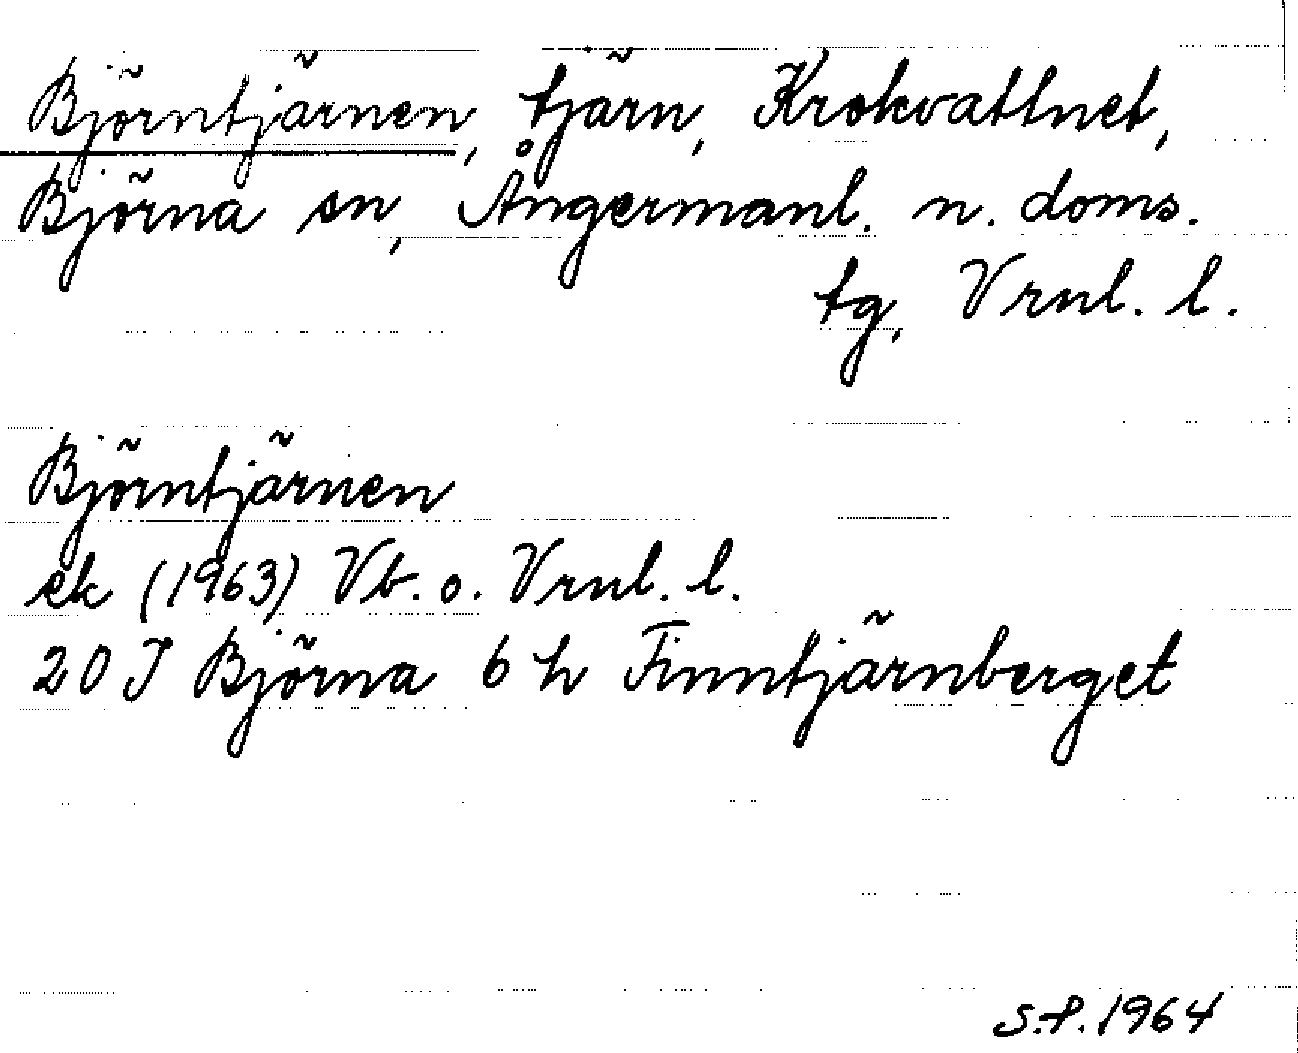 Björntjärnen, tjärn, Krokvattnet,
Björna sn, Ångermanl. n. doms.
tg, Vrnl. l.
Björntjärnen
ek (1963) Vb. o. Vrnl. l.
20 J Björna 6 h Finntjärnberget
S.P. 1964